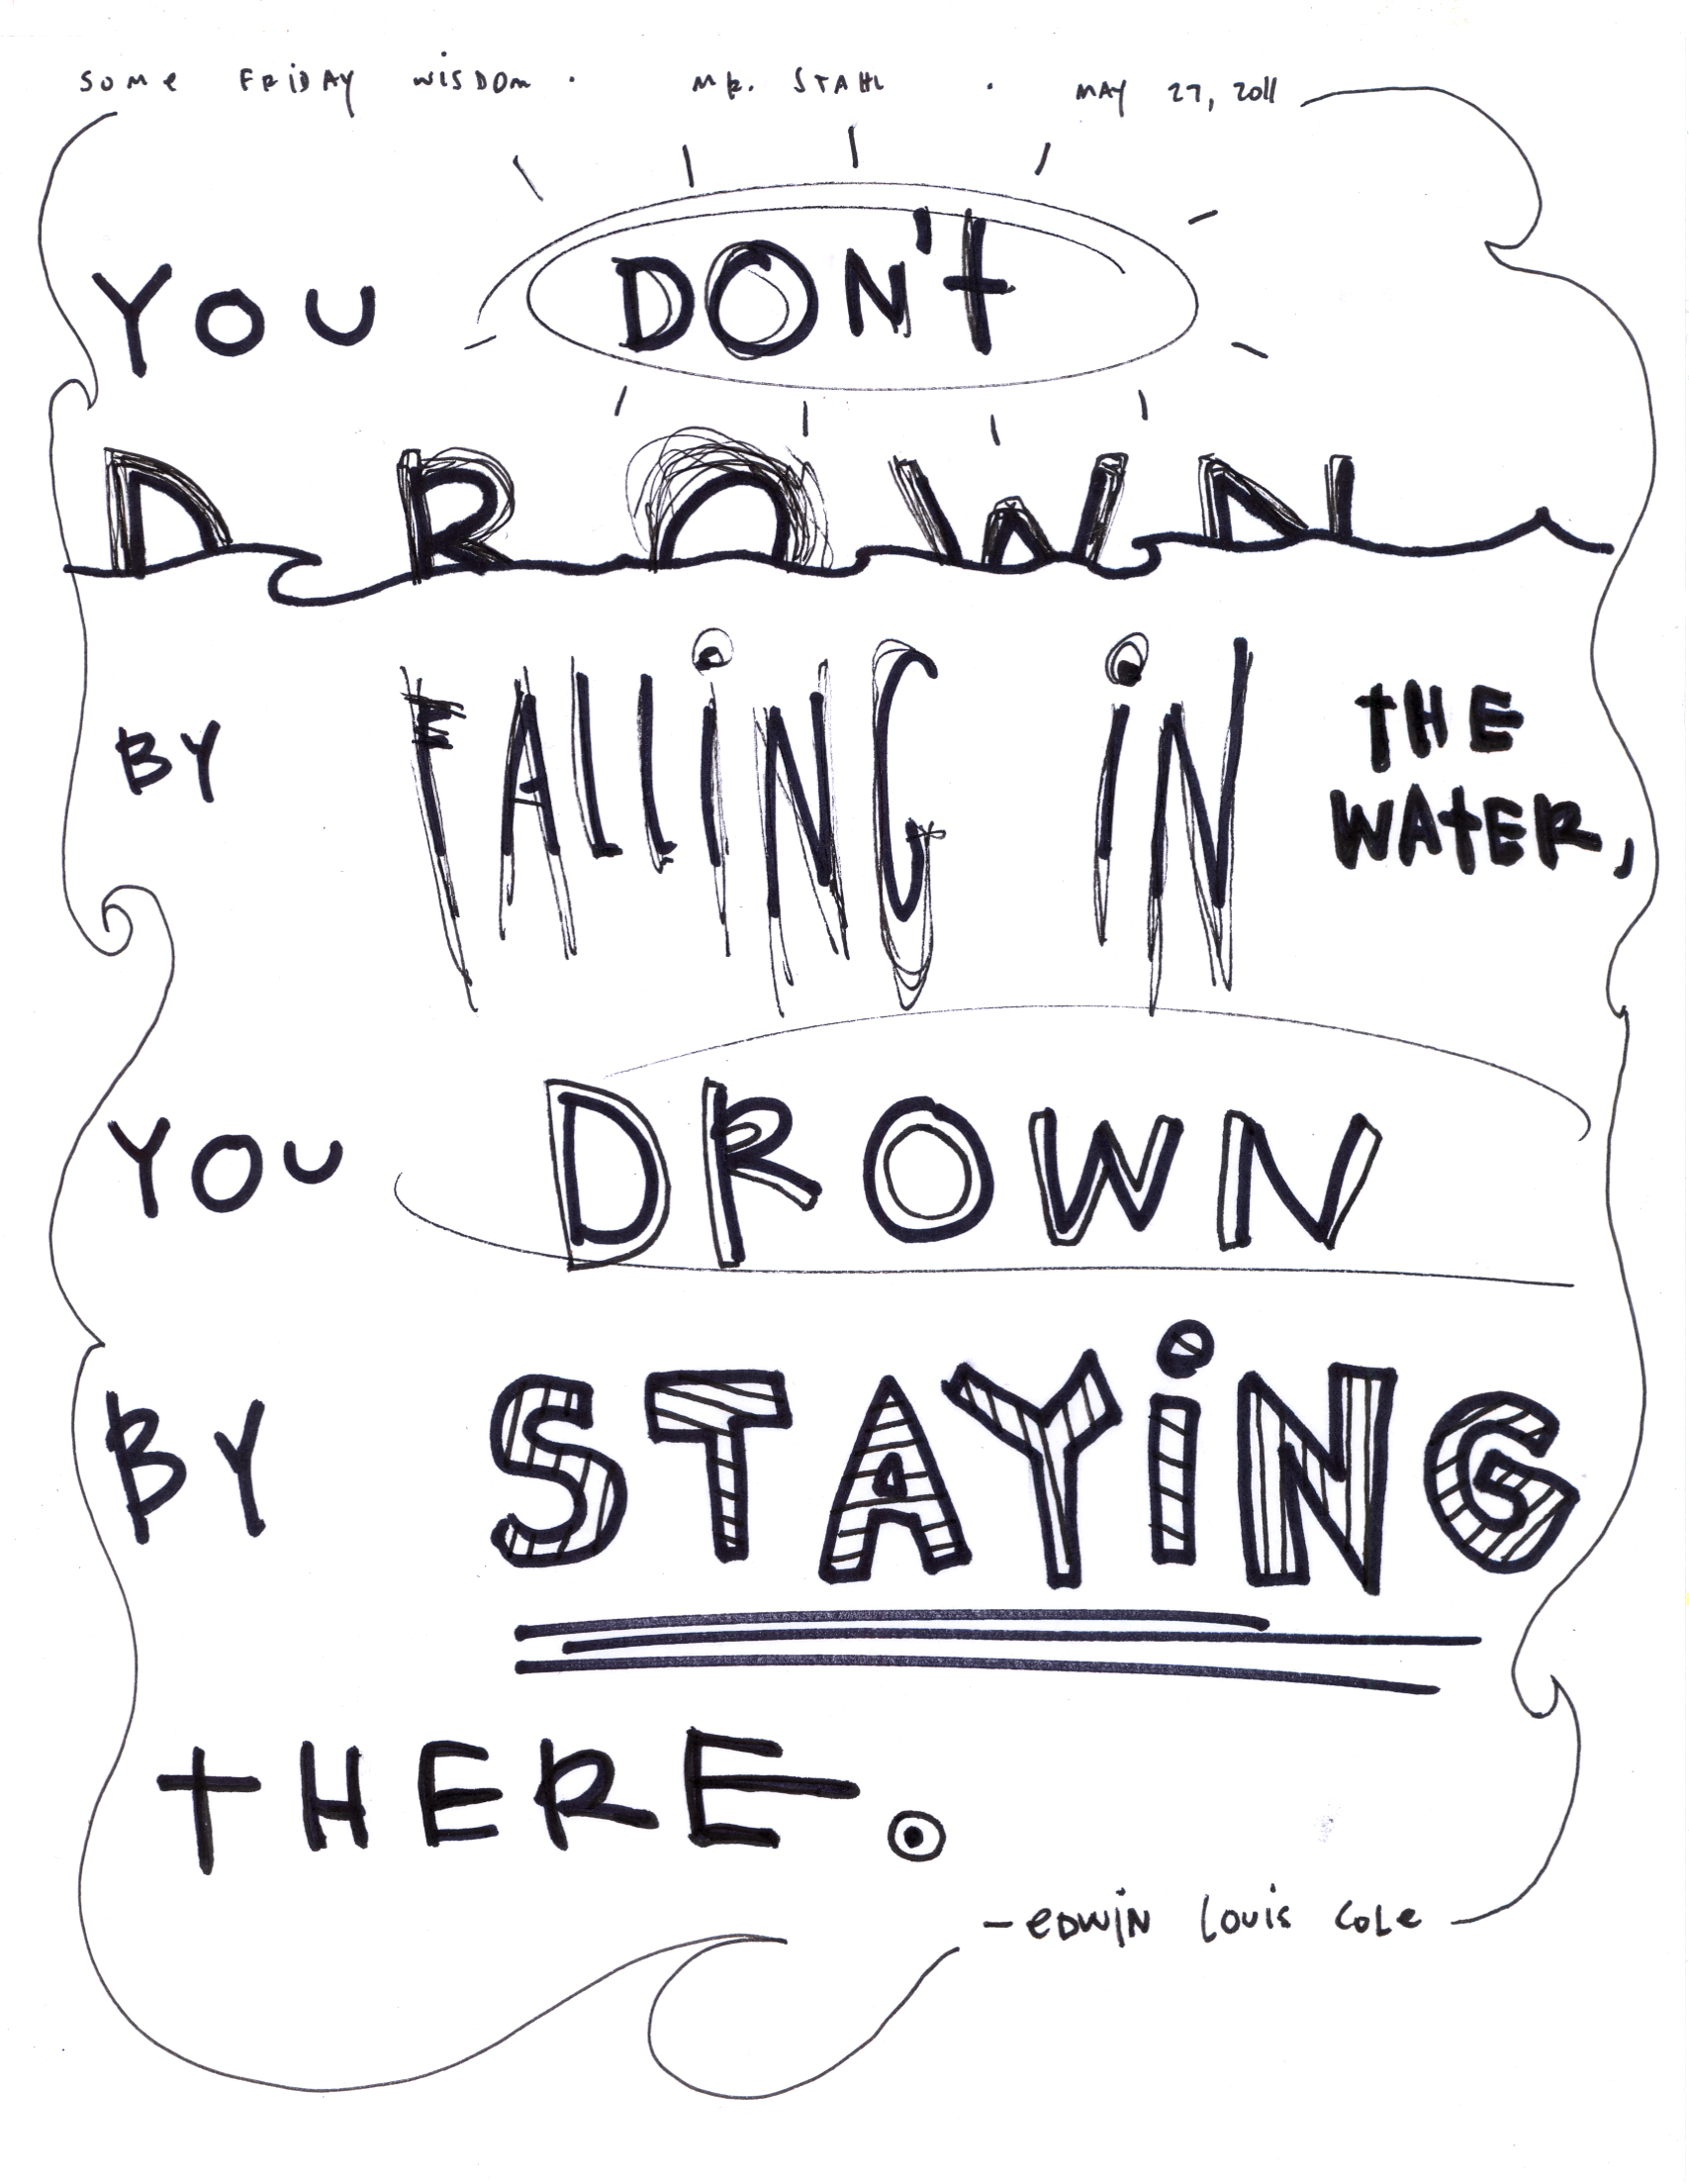 SOME FRIDAY WISDOM · MR. STAHL · MAY 27, 2011
YOU DON't
DROWN
BY FALLiNG iN tHE
WAtER,
YOU DROWN
BY STAYiNG
tHERE.
- eDWiN Louis CoLe